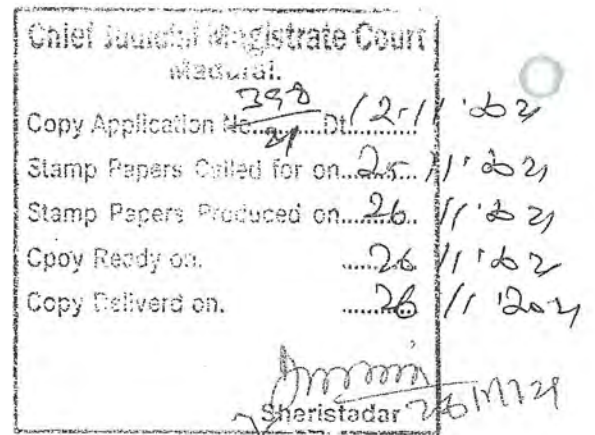 Chief Judicial Magistrate Court
Madurai.
Copy Application No. 398/21 Dt. 12.11.2021
Stamp Papers Called for on 25.11.2021
Stamp Papers Produced on 26.11.2021
Cpoy Ready on. 26.11.2021
Copy Deliverd on. 26.11.2021
Sheristadar 26/11/21